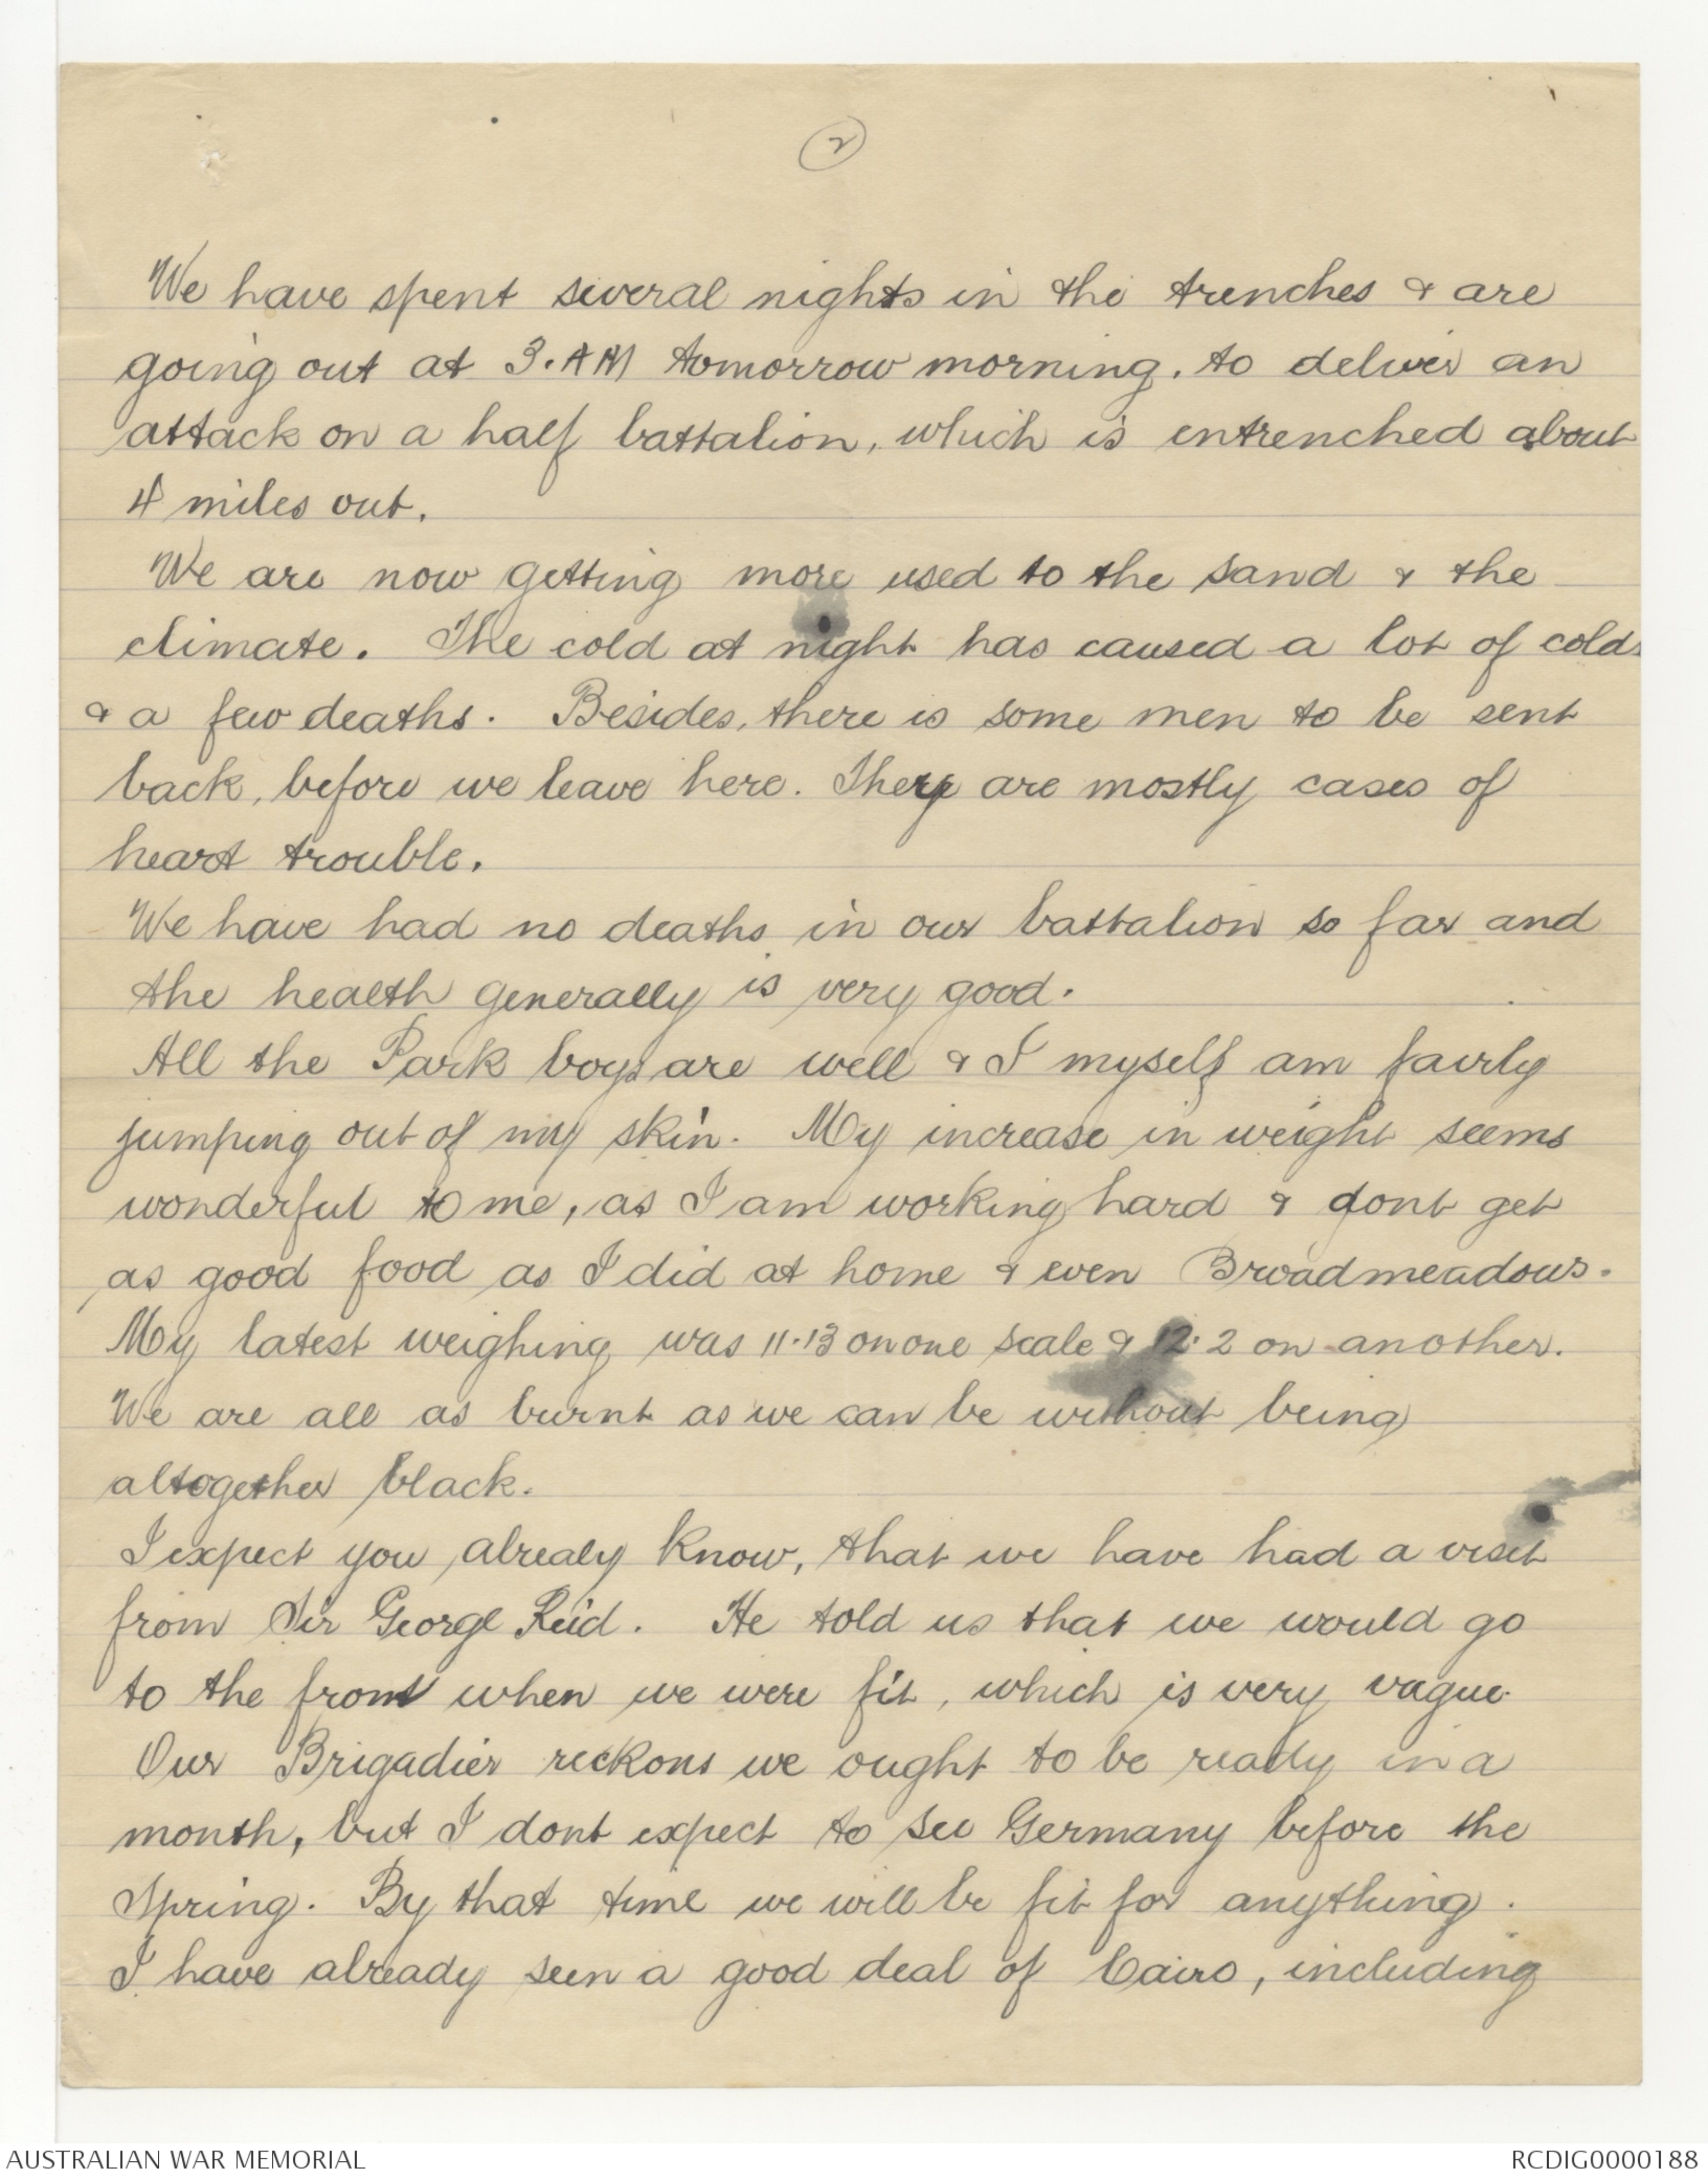 2
We have spent several nights in the trenches & are
going out at 3.AM tomorrow morning. to deliver an
attack on a half battalion, which is entrenched about
4 miles out.
We are now getting more used to the sand & the
climate. The cold at night has caused a lot of colds
& a few deaths. Besides, there is some men to be sent
back, before we leave here. They are mostly cases of
heart trouble.
We have had no deaths in our battalion so far and
the health generally is very good.
All the Park boys are well & I myself am fairly
jumping out of my skin. My increase in weight seems
wonderful to me, as I am working hard & dont get
as good food as I did at home & even Broadmeadows.
My latest weighing was 11.13 on one scale & 12.2 on another.
We are all as burnt as we can be without being
altogether black.
I expect you alrealy know, that we have had a visit
from Sir George Reid. He told us that we would go
to the front when we were fit, which is very vague.
Our Brigadier reckons we ought to be ready in a
month, but I dont expect to see Germany before the
Spring. By that time we will be fit for anything.
I have already seen a good deal of Cairo, including
AUSTRALIAN WAR MEMORIAL
RCDIG0000188